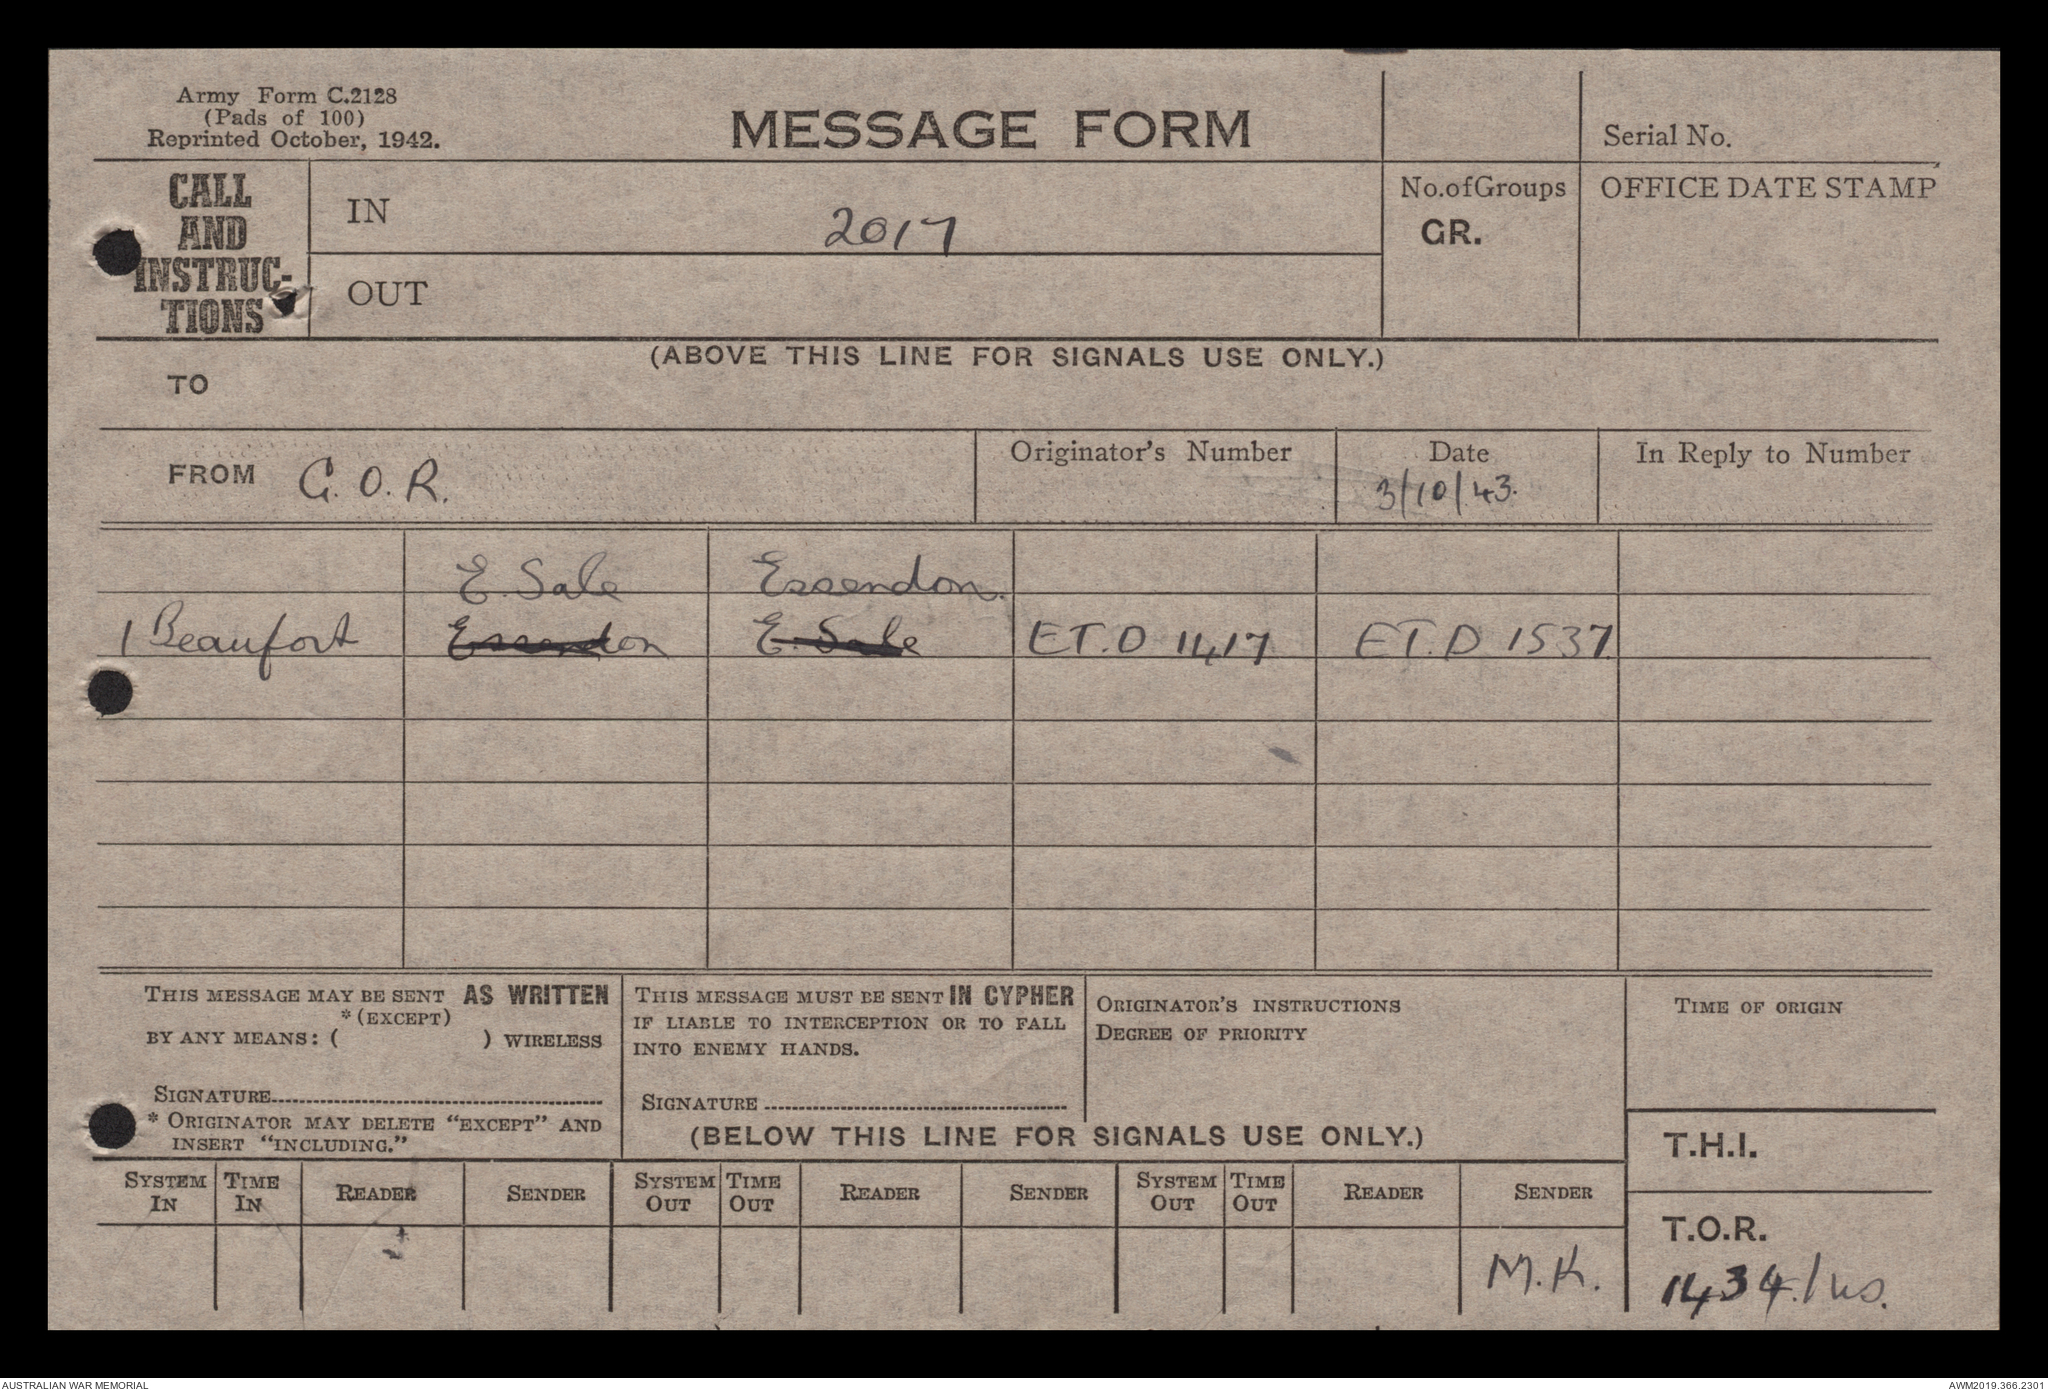 Army Form C.2128
(Pads of 100)
Reprinted October, 1942.
MESSAGE FORM
Serial No.
CALL
AND
INSTRUC-
TIONS
IN
2017
OUT
No. of Groups
GR.
OFFICE DATE STAMP
(ABOVE THIS LINE FOR SIGNALS USE ONLY.)
TO
FROM G.O.R.
Originator's Number
Date
3/10/43.
In Reply to Number
E. Sale Essendon.
1 Beaufort Essendon E. Sale ET.D 1417 ET.D 1537
THIS MESSAGE MAY BE SENT AS WRITTEN
*(EXCEPT)
BY ANY MEANS: ( ) WIRELESS
SIGNATURE
* ORIGINATOR MAY DELETE "EXCEPT" AND
INSERT "INCLUDING."
THIS MESSAGE MUST BE SENT IN CYPHER
IF LIABLE TO INTERCEPTION OR TO FALL
INTO ENEMY HANDS.
SIGNATURE
ORIGINATOR'S INSTRUCTIONS
DEGREE OF PRIORITY
TIME OF ORIGIN
(BELOW THIS LINE FOR SIGNALS USE ONLY.)
T.H.I.
SYSTEM IN TIME IN READER SENDER SYSTEM OUT TIME OUT READER SENDER SYSTEM OUT TIME OUT READER SENDER
M.K.
T.O.R.
1434.
AUSTRALIAN WAR MEMORIAL
AWM2019.366.2301